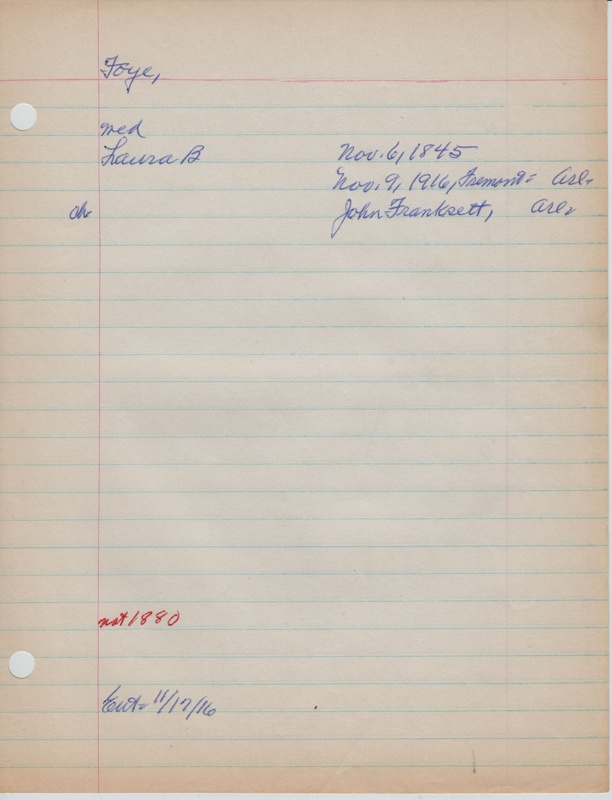 Foye,
med
Laura B Nov. 6, 1845
Nov. 9, 1916, Fremont= Arl.
ch John Franksett, Arl.
not 1880
Ent= 11/17/16